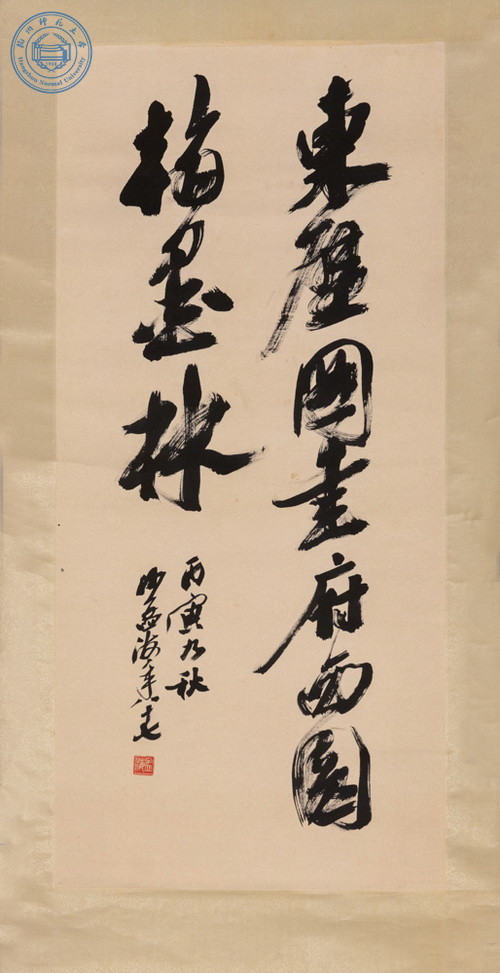 東壁圖書府西園
翰墨林
丙寅九秋
沙孟海年八十七
杭州师范大学
Hangzhou Normal University